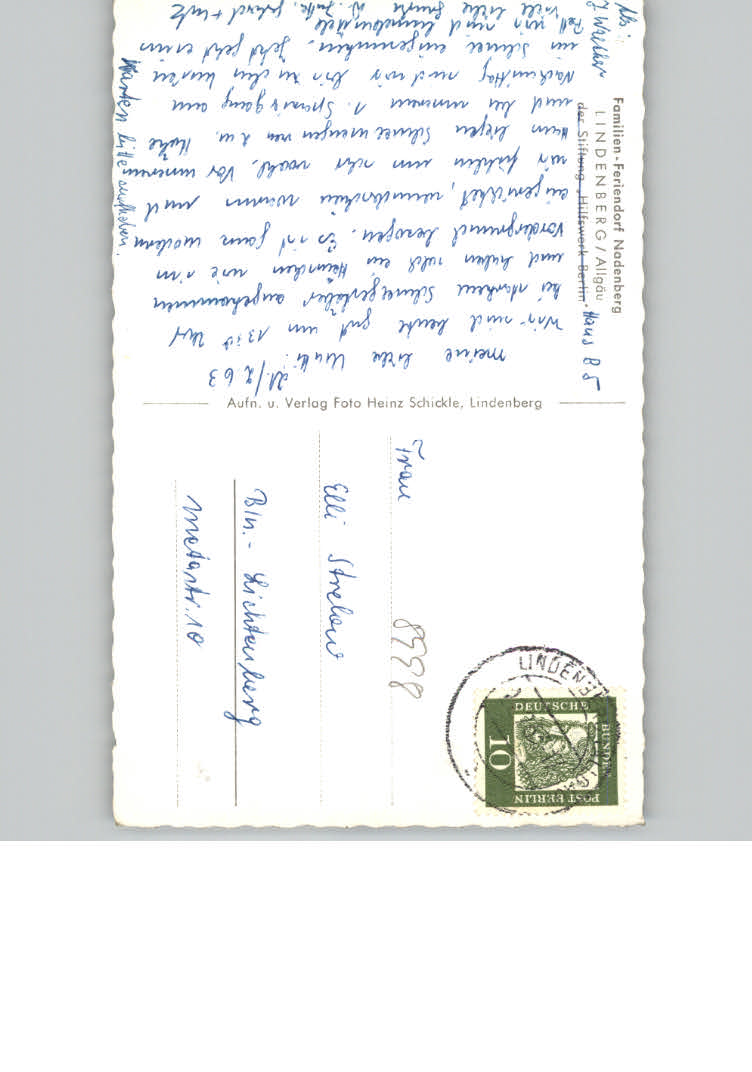 Familien-Feriendorf Nadenberg
LINDENBERG / Allgäu
der Stiftung „Hilfswerk Berlin“ Haus B 5
21./2 63
Meine liebe Mutti!
Wir sind heute gut um 13 10 Uhr
bei starkem Schneegestöber angekommen
und haben bald ein Häuschen wie im
Vordergrund bezogen. Es ist ganz modern
eingerichtet, wunderschön warm und
wir fühlen uns sehr wohl. Vor unserem
Haus liegen Schneemengen von 2 m Höhe
und bei unserem 1. Spaziergang am
Nachmittag sind wir bis zu den Knien
im Schnee eingesunken. Jetzt
und
viele liebe
Karten bitte aufheben.
Aufn. u. Verlag Foto Heinz Schickle, Lindenberg
Frau
Elli Strelow
Bln.-Lichtenberg
Metastr. 10
8558
LINDENBERG
DEUTSCHE
BUNDES
POST BERLIN
10